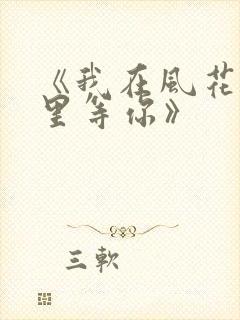 《我在風花
里等你》
三軟